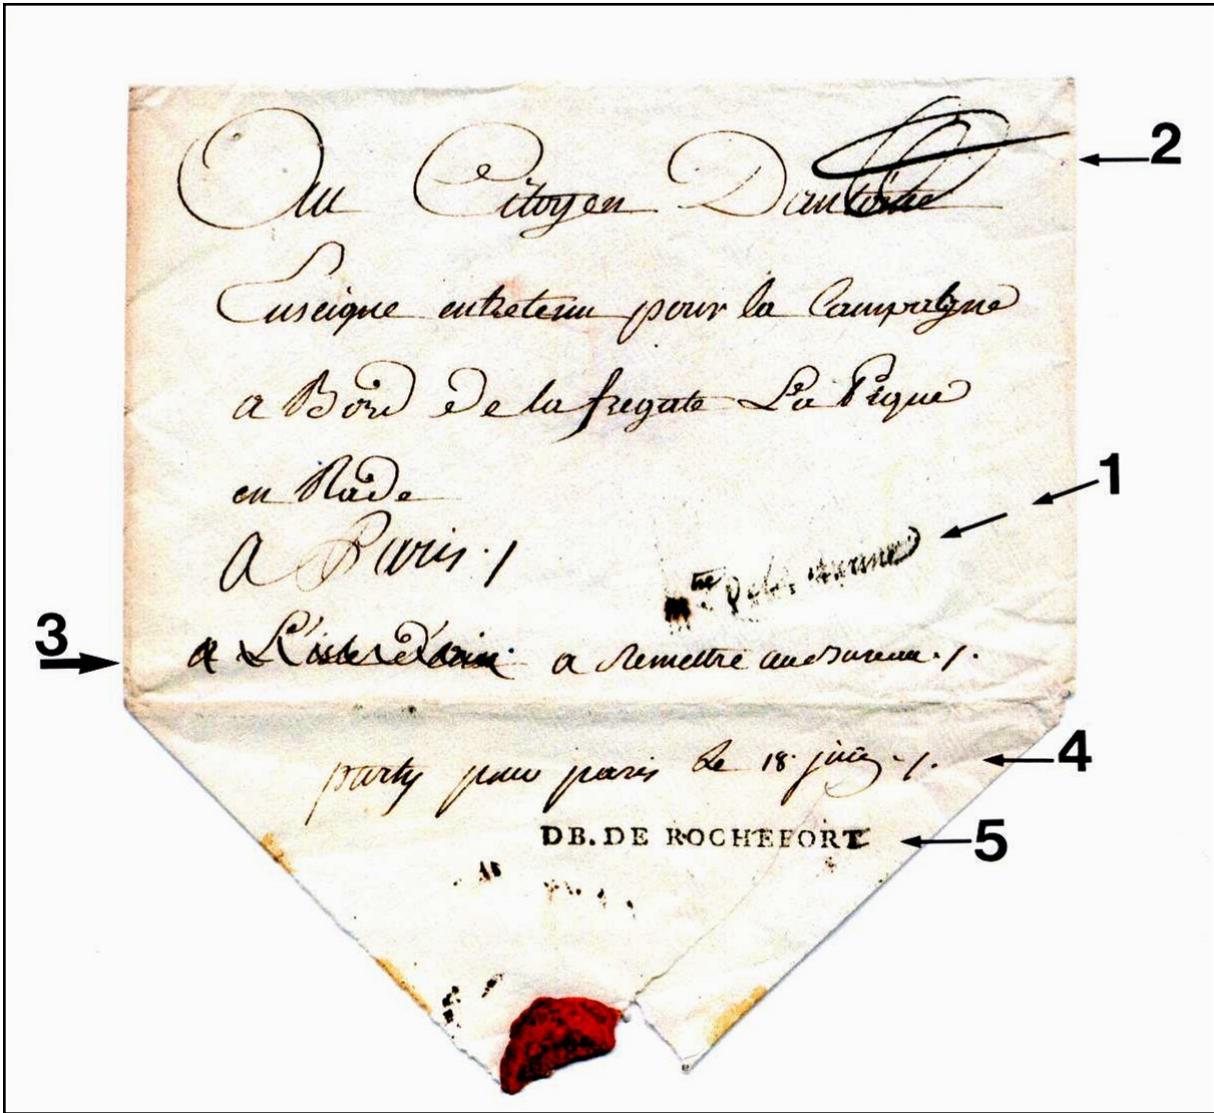 Au Citoyen Dantoine
2
Enseigne entretenu pour la Campagne
a Bord de la fregate La Pique
en Rade
1
a Paris ./
mtre De la marine
3
a L'isle d'aix a Remettre au Bureau ./.
party pour paris le 18 juin ./.
4
DB. DE ROCHEFORT
5